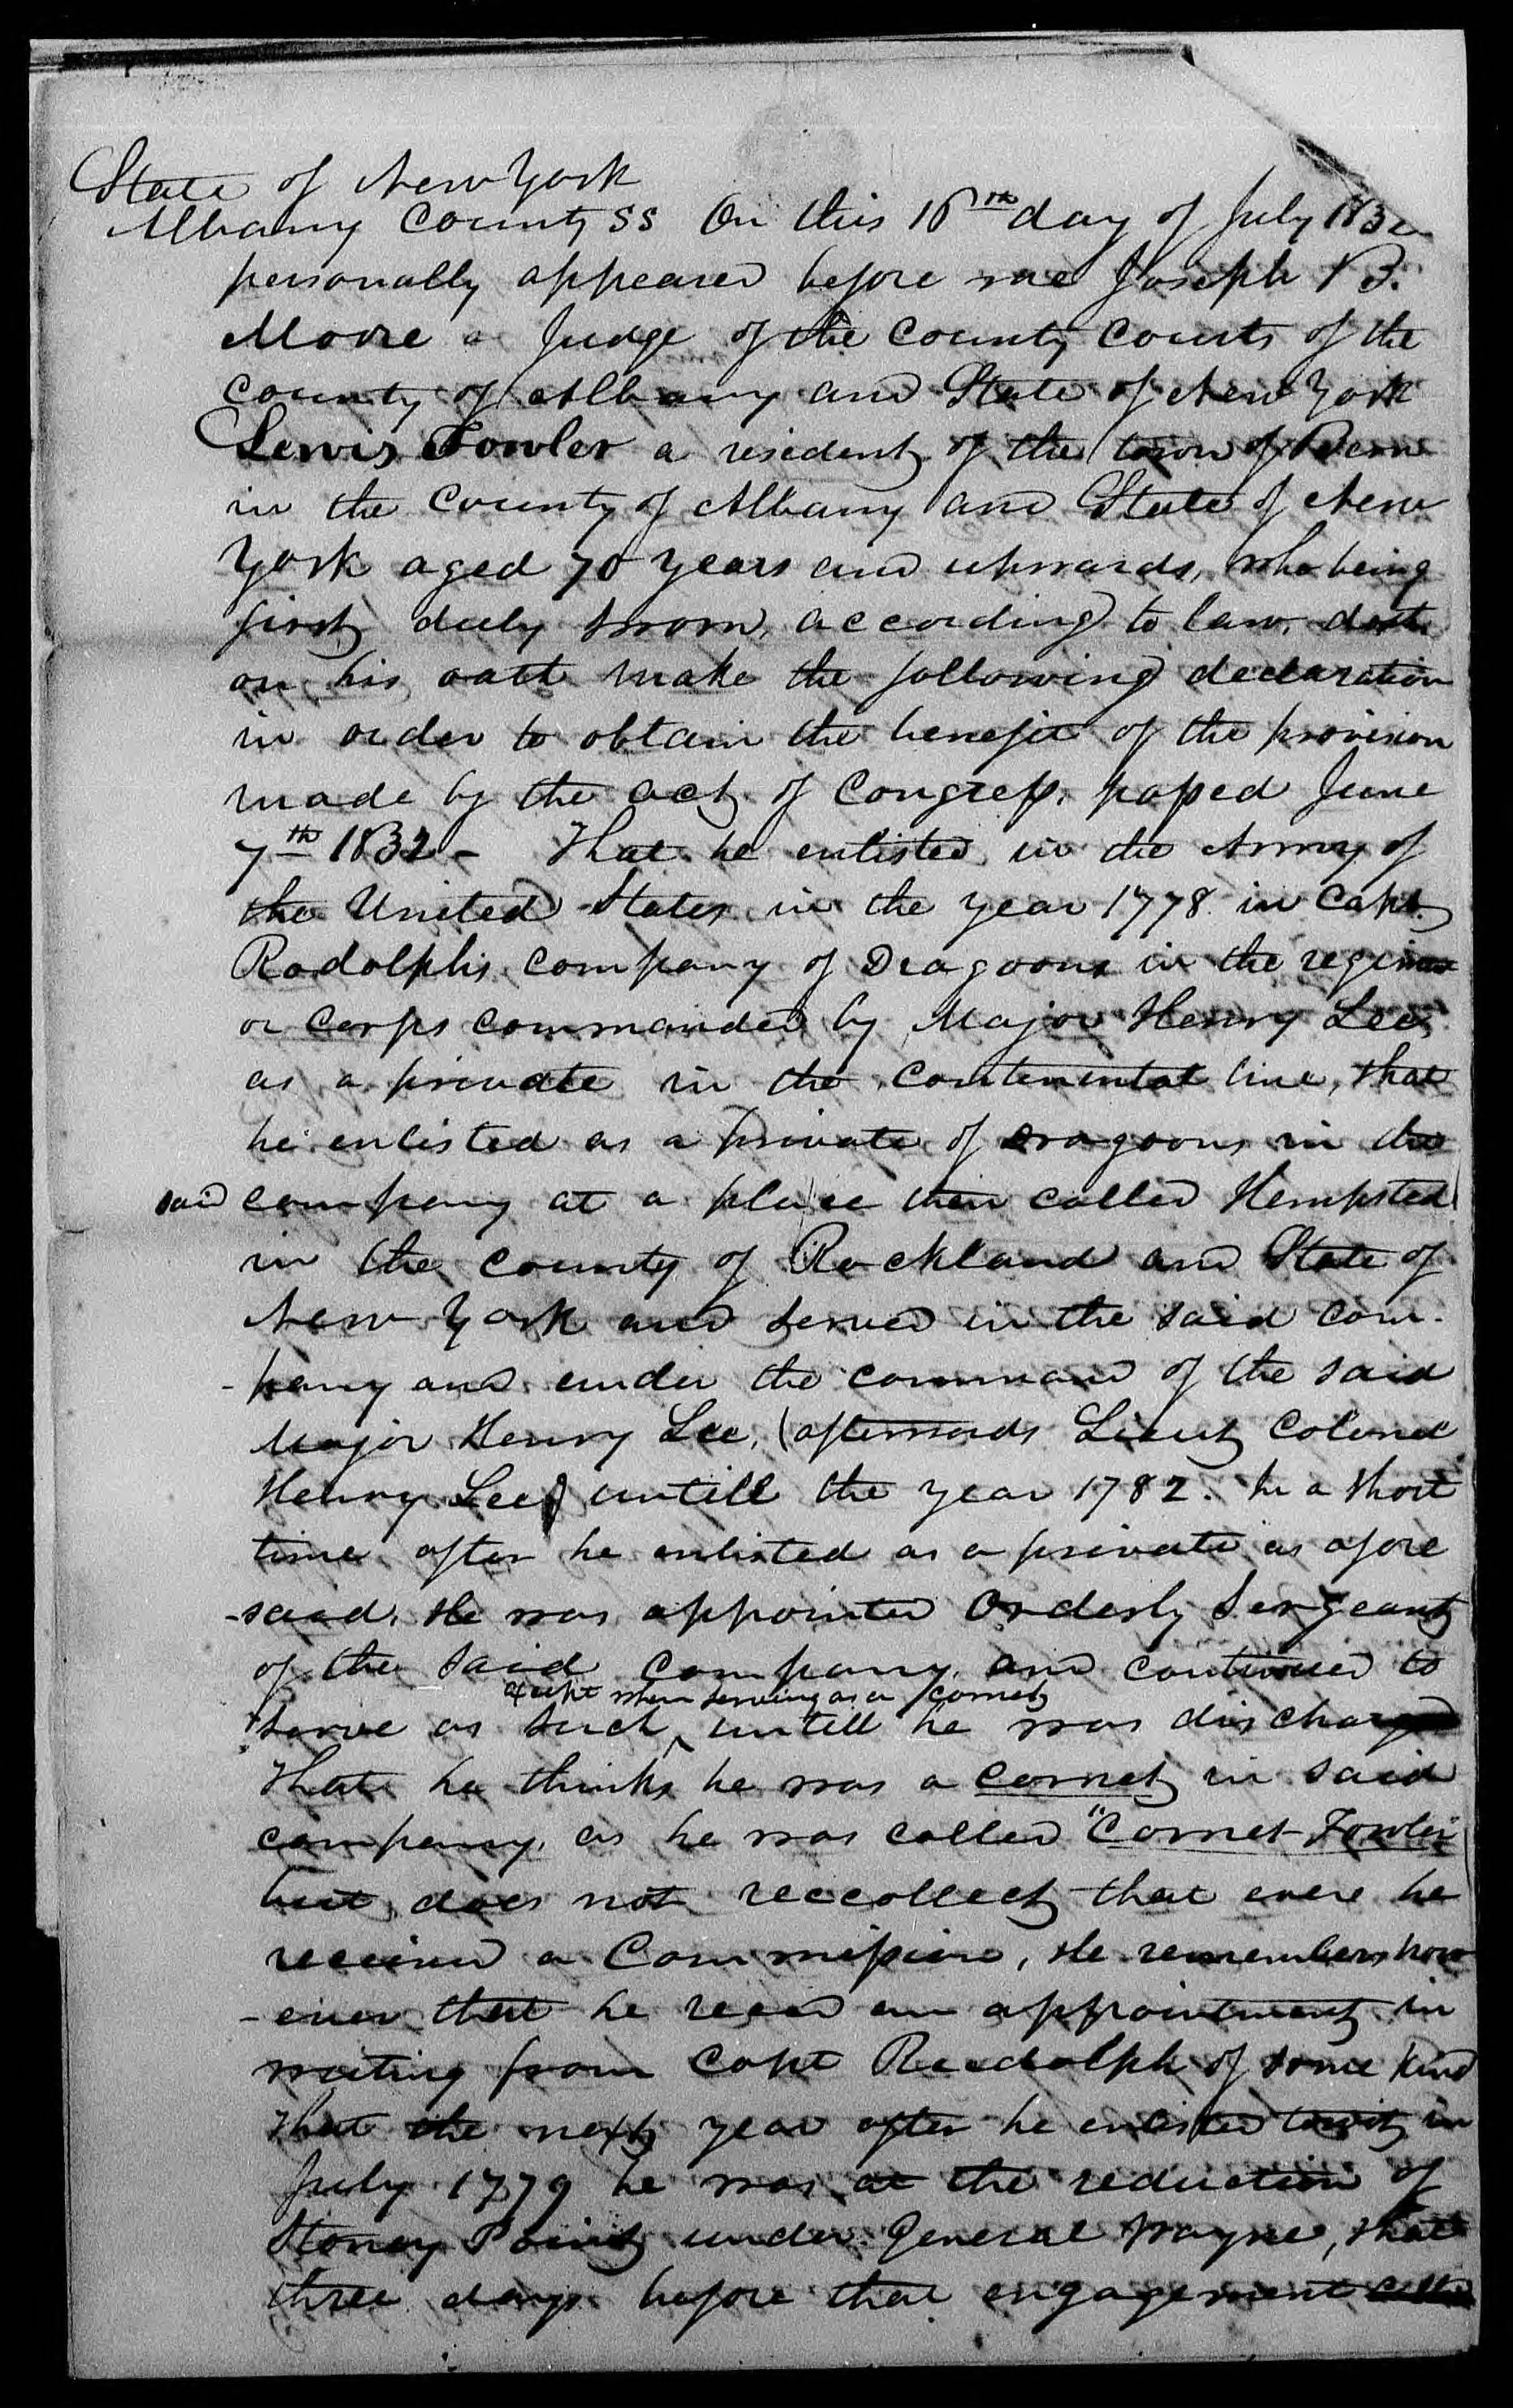 State of New York
Albany County SS On this 16th day of July 1832
personally appeared before me Joseph B.
Moore a Judge of the County Courts of the
County of Albany and State of New York
Lewis Fowler a resident of the town of Bern
in the County of Albany and State of New
York aged 70 years and upwards, who being
first duly sworn, according to law, doth
on his oath make the following declaration
in order to obtain the benefit of the provision
made by the act of Congress, passed June
7th 1832 - That he enlisted in the Army of
the United States in the year 1778 in Capt
Rodolphs company of Dragoons in the regiment
or Corps commanded by Major Henry Lee,
as a private in the continental line, that
he enlisted as a private of dragoons in the
said company at a place then called Hempsted
in the county of Rockland and State of
New York and served in the said com-
-pany and under the command of the said
Major Henry Lee, (afterwards Lieut Colonel
Henry Lee) untill the year 1782. he a short
time after he enlisted as a private as afore
-said, He was appointed Orderly Sergeant
of the said company and continued to
except when serving as a cornet
serve as such ^ untill he was discharged
That he thinks he was a cornet in said
company, as he was called "Cornet Fowler"
but does not reccollect that ever he
received a Commission, He remembers how
-ever that he recd an appointment in
writing from Capt Rudolph of some kind
That the next year after he enlisted towit in
July 1779 he was at the reduction of
Stoney Point under General Wayne, that
three days before that engagement